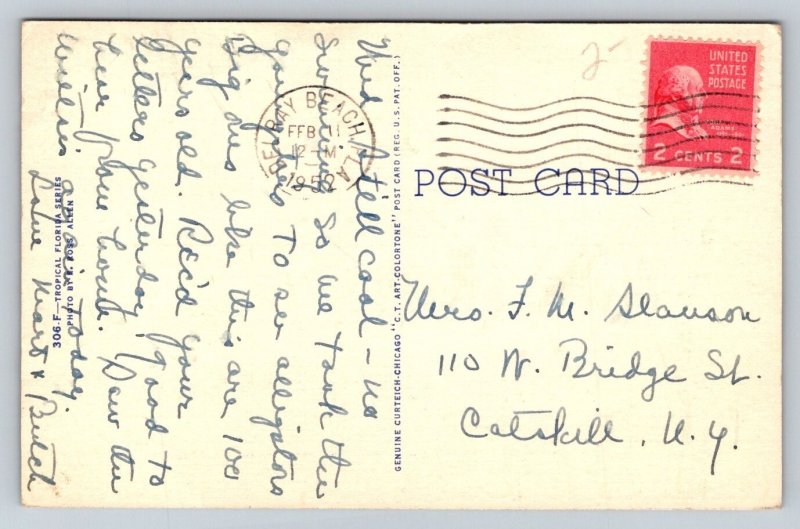 Wed. still cool – no
swimming so we took the
youngsters to see alligators
Big ones like this are 100
years old. Rec'd your
letters yesterday, good to
hear from both. Saw the
again today.
Love Mart & Butch
306-F—TROPICAL FLORIDA SERIES
PHOTO BY E. ROSS ALLEN
GENUINE CURTEICH-CHICAGO "C.T. ART-COLORTONE" POST CARD (REG. U. S. PAT. OFF.)
DELRAY BEACH, FLA.
FEB 11
12 – M
1952
UNITED
STATES
POSTAGE
JOHN
ADAMS
2 CENTS 2
POST CARD
Mrs. F. M. Slauson
110 W. Bridge St.
Catskill, N.Y.